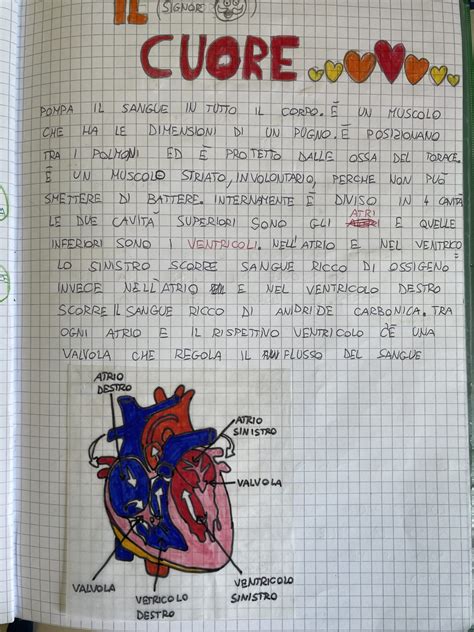 IL (SIGNORE
CUORE
POMPA IL SANGUE IN TUTTO IL CORPO. È UN MUSCOLO
CHE HA LE DIMENSIONI DI UN PUGNO. È POSIZIONANO
TRA I POLMONI ED È PROTETTO DALLE OSSA DEL TORACE.
È UN MUSCOLO STRIATO, INVOLONTARIO, PERCHE NON PUÒ
SMETTERE DI BATTERE. INTERNAMENTE È DIVISO IN 4 CAVITÀ
LE DUE CAVITÀ SUPERIORI SONO GLI ATRI E QUELLE
INFERIORI SONO I VENTRICOLI. NELL'ATRIO E NEL VENTRICO
LO SINISTRO SCORRE SANGUE RICCO DI OSSIGENO
INVECE NELL'ATRIO E NEL VENTRICOLO DESTRO
SCORRE IL SANGUE RICCO DI ANIDRIDE CARBONICA. TRA
OGNI ATRIO E IL RISPETTIVO VENTRICOLO C'È UNA
VALVOLA CHE REGOLA IL FLUSSO DEL SANGUE
ATRIO
DESTRO
ATRIO
SINISTRO
VALVOLA
VALVOLA
VETRICOLO
DESTRO
VENTRICOLO
SINISTRO